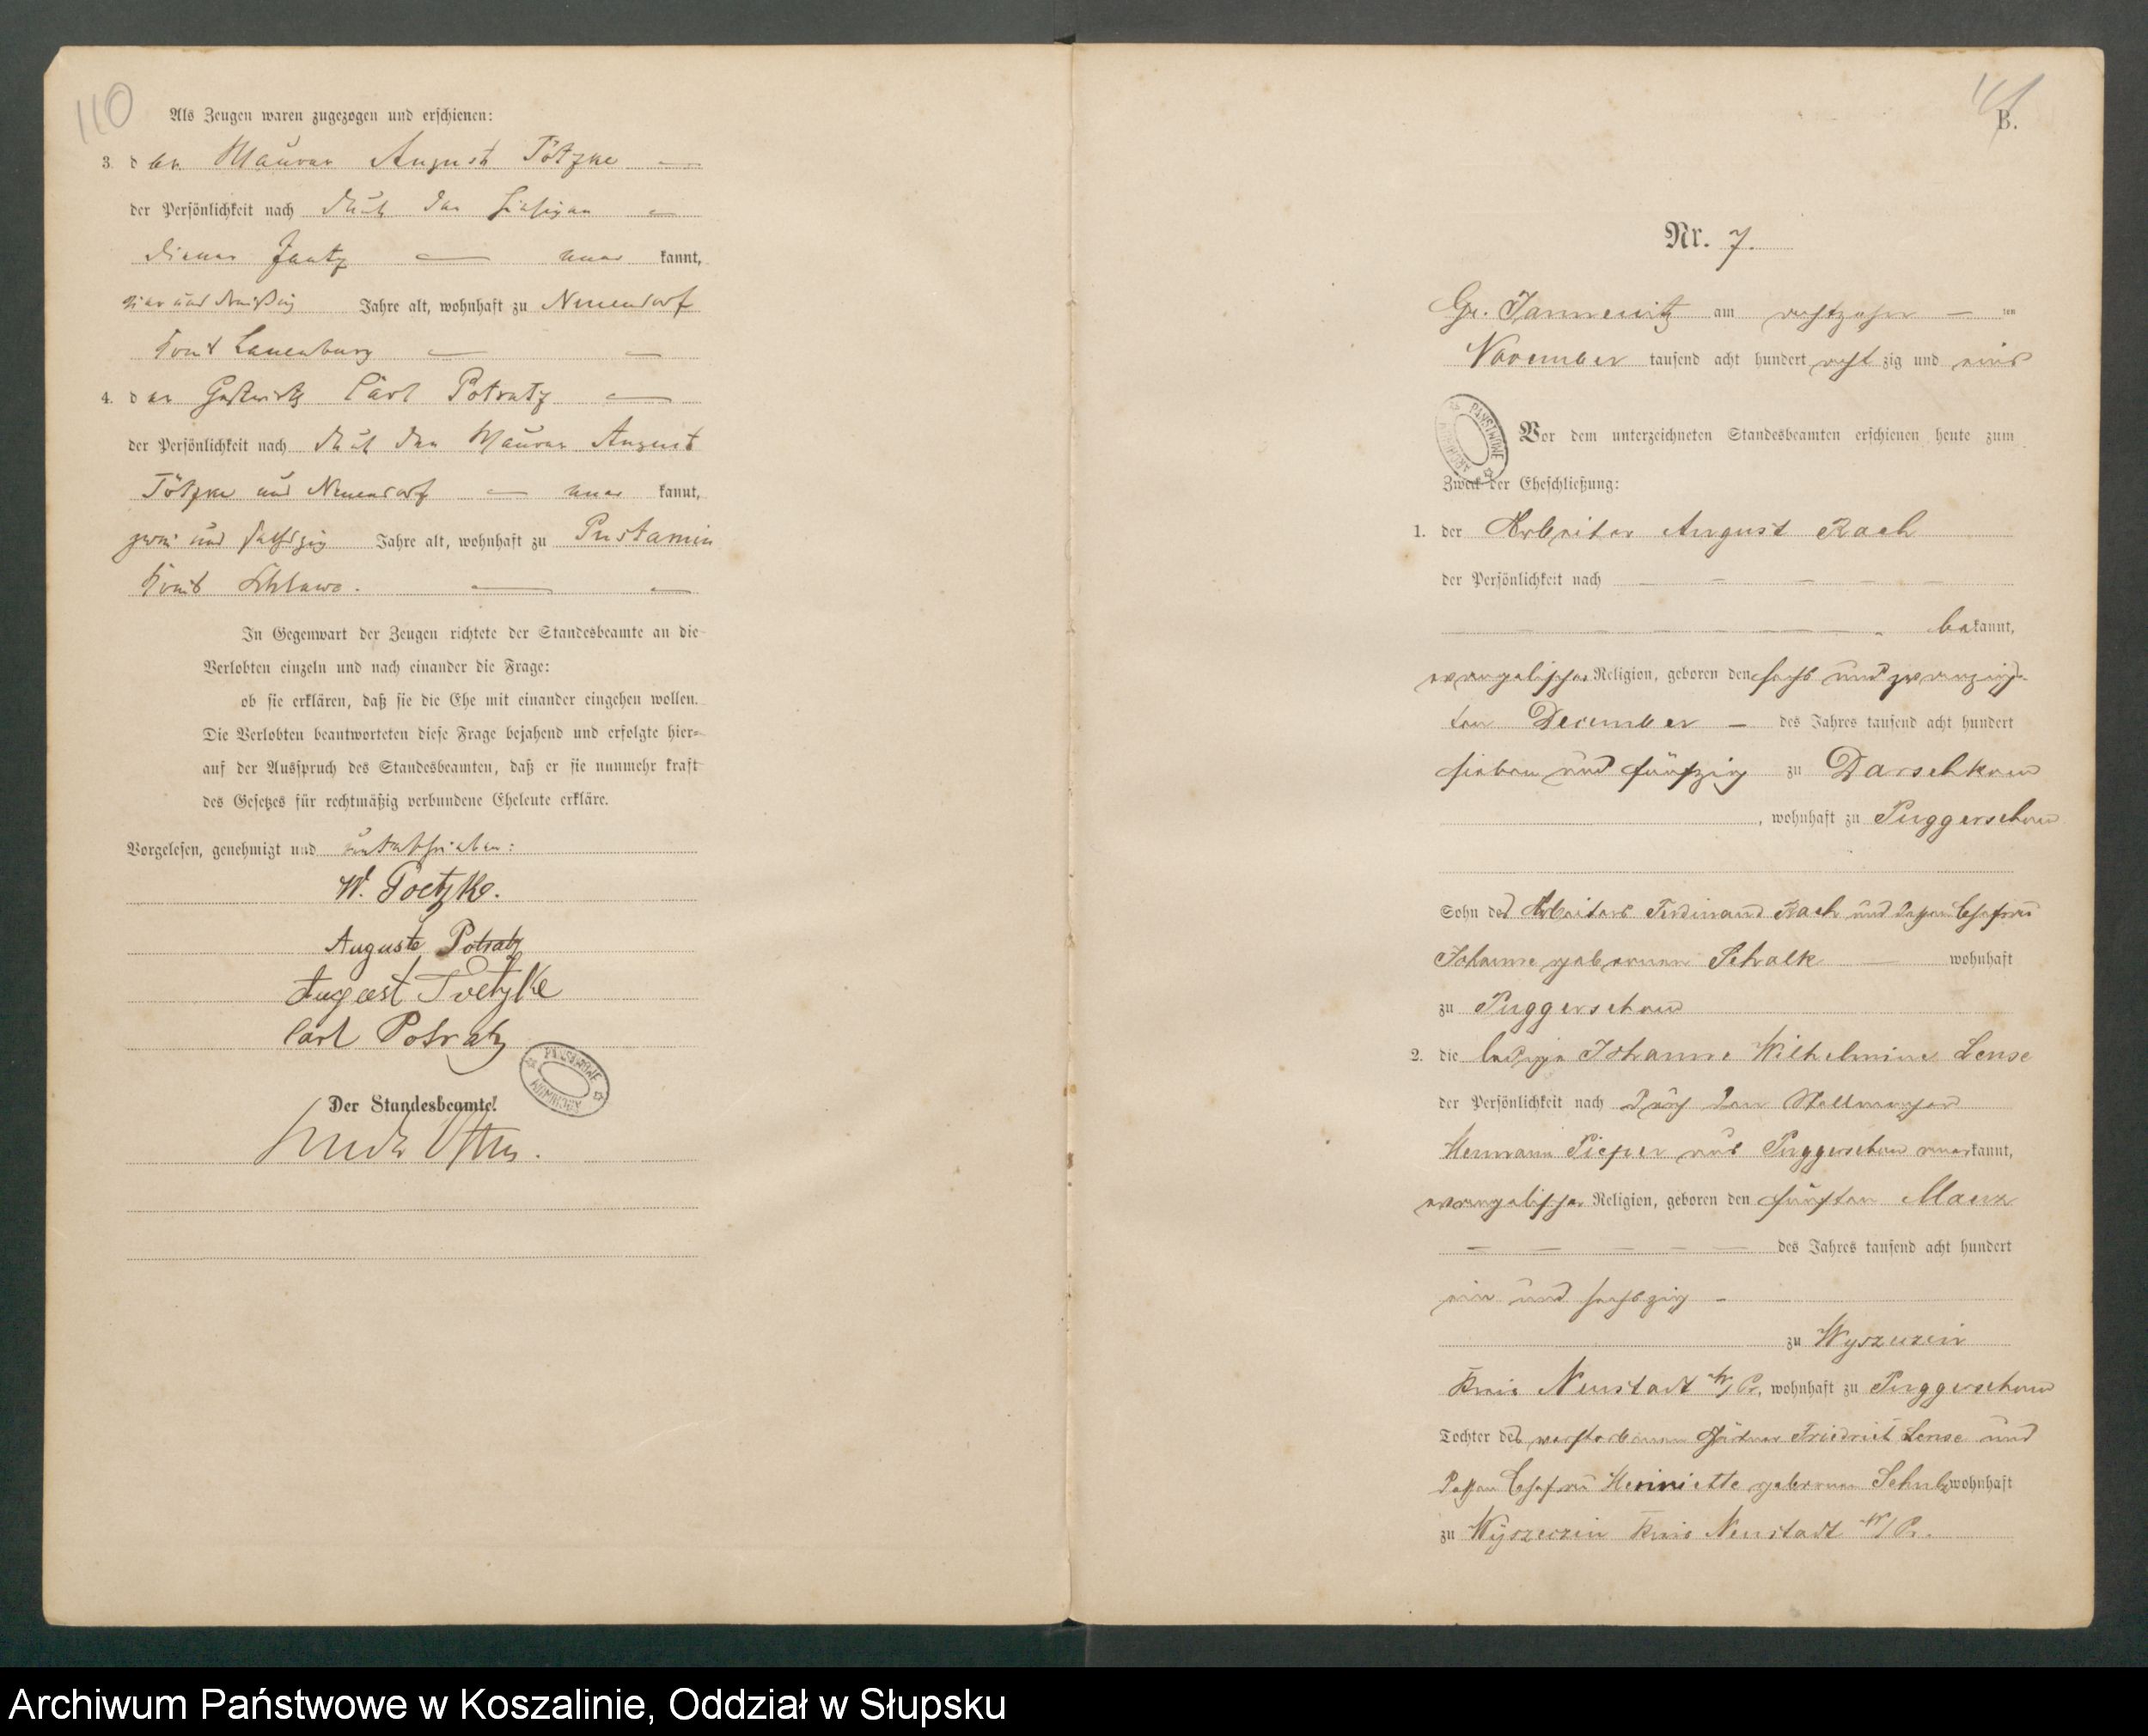 110
Als Zeugen waren zugezogen und erschienen:
3. der Maurer August Tötzke
der Persönlichkeit nach durch den hiesigen
Diener Jantz aner kannt,
vier und dreißig Jahre alt, wohnhaft zu Neuendorf
Kreis Lauenburg
4. der Gastwirth Carl Potratz
der Persönlichkeit nach durch den Maurer August
Tötzke aus Neuendorf aner kannt,
zwei und sechszig Jahre alt, wohnhaft zu Pustamin
Kreis Schlawe.
In Gegenwart der Zeugen richtete der Standesbeamte an die
Verlobten einzeln und nach einander die Frage:
ob sie erklären, daß sie die Ehe mit einander eingehen wollen.
Die Verlobten beantworteten diese Frage bejahend und erfolgte hier-
auf der Ausspruch des Standesbeamten, daß er sie nunmehr kraft
des Gesetzes für rechtmäßig verbundene Eheleute erkläre.
Vorgelesen, genehmigt und unterschrieben:
W. Toetzke.
Auguste Potratz
August Toetzke
Carl Potratz
Der Standesbeamte.
B.
Nr. 7.
Gr. Jannewitz am achtzehn ten
November tausend acht hundert acht zig und eins
Vor dem unterzeichneten Standesbeamten erschienen heute zum
Zweck der Eheschließung:
1. der Arbeiter August Rach
der Persönlichkeit nach
be kannt,
evangelischer Religion, geboren den sechs und zwanzig-
sten December des Jahres tausend acht hundert
sieben und fünfzig zu Darschkow
, wohnhaft zu Puggerschow
Sohn des Arbeiters Ferdinand Rach und dessen Ehefrau
Johanne geborenen Schalk wohnhaft
zu Puggerschow
2. die ledige Johanne Wilhelmine Lense
der Persönlichkeit nach durch den Stellmacher
Hermann Pieper aus Puggerschow aner kannt,
evangelischer Religion, geboren den fünften Maerz
des Jahres tausend acht hundert
ein und sechszig
zu Wyszeczin
Kreis Neustadt W/Pr., wohnhaft zu Puggerschow
Tochter des verstorbenen Gärtner Friedrich Lense und
dessen Ehefrau Henriette geborenen Schulz wohnhaft
zu Wyszeczin Kreis Neustadt W/Pr.
PAŃSTWOWE ARCHIWUM
PAŃSTWOWE ARCHIWUM
Archiwum Państwowe w Koszalinie, Oddział w Słupsku